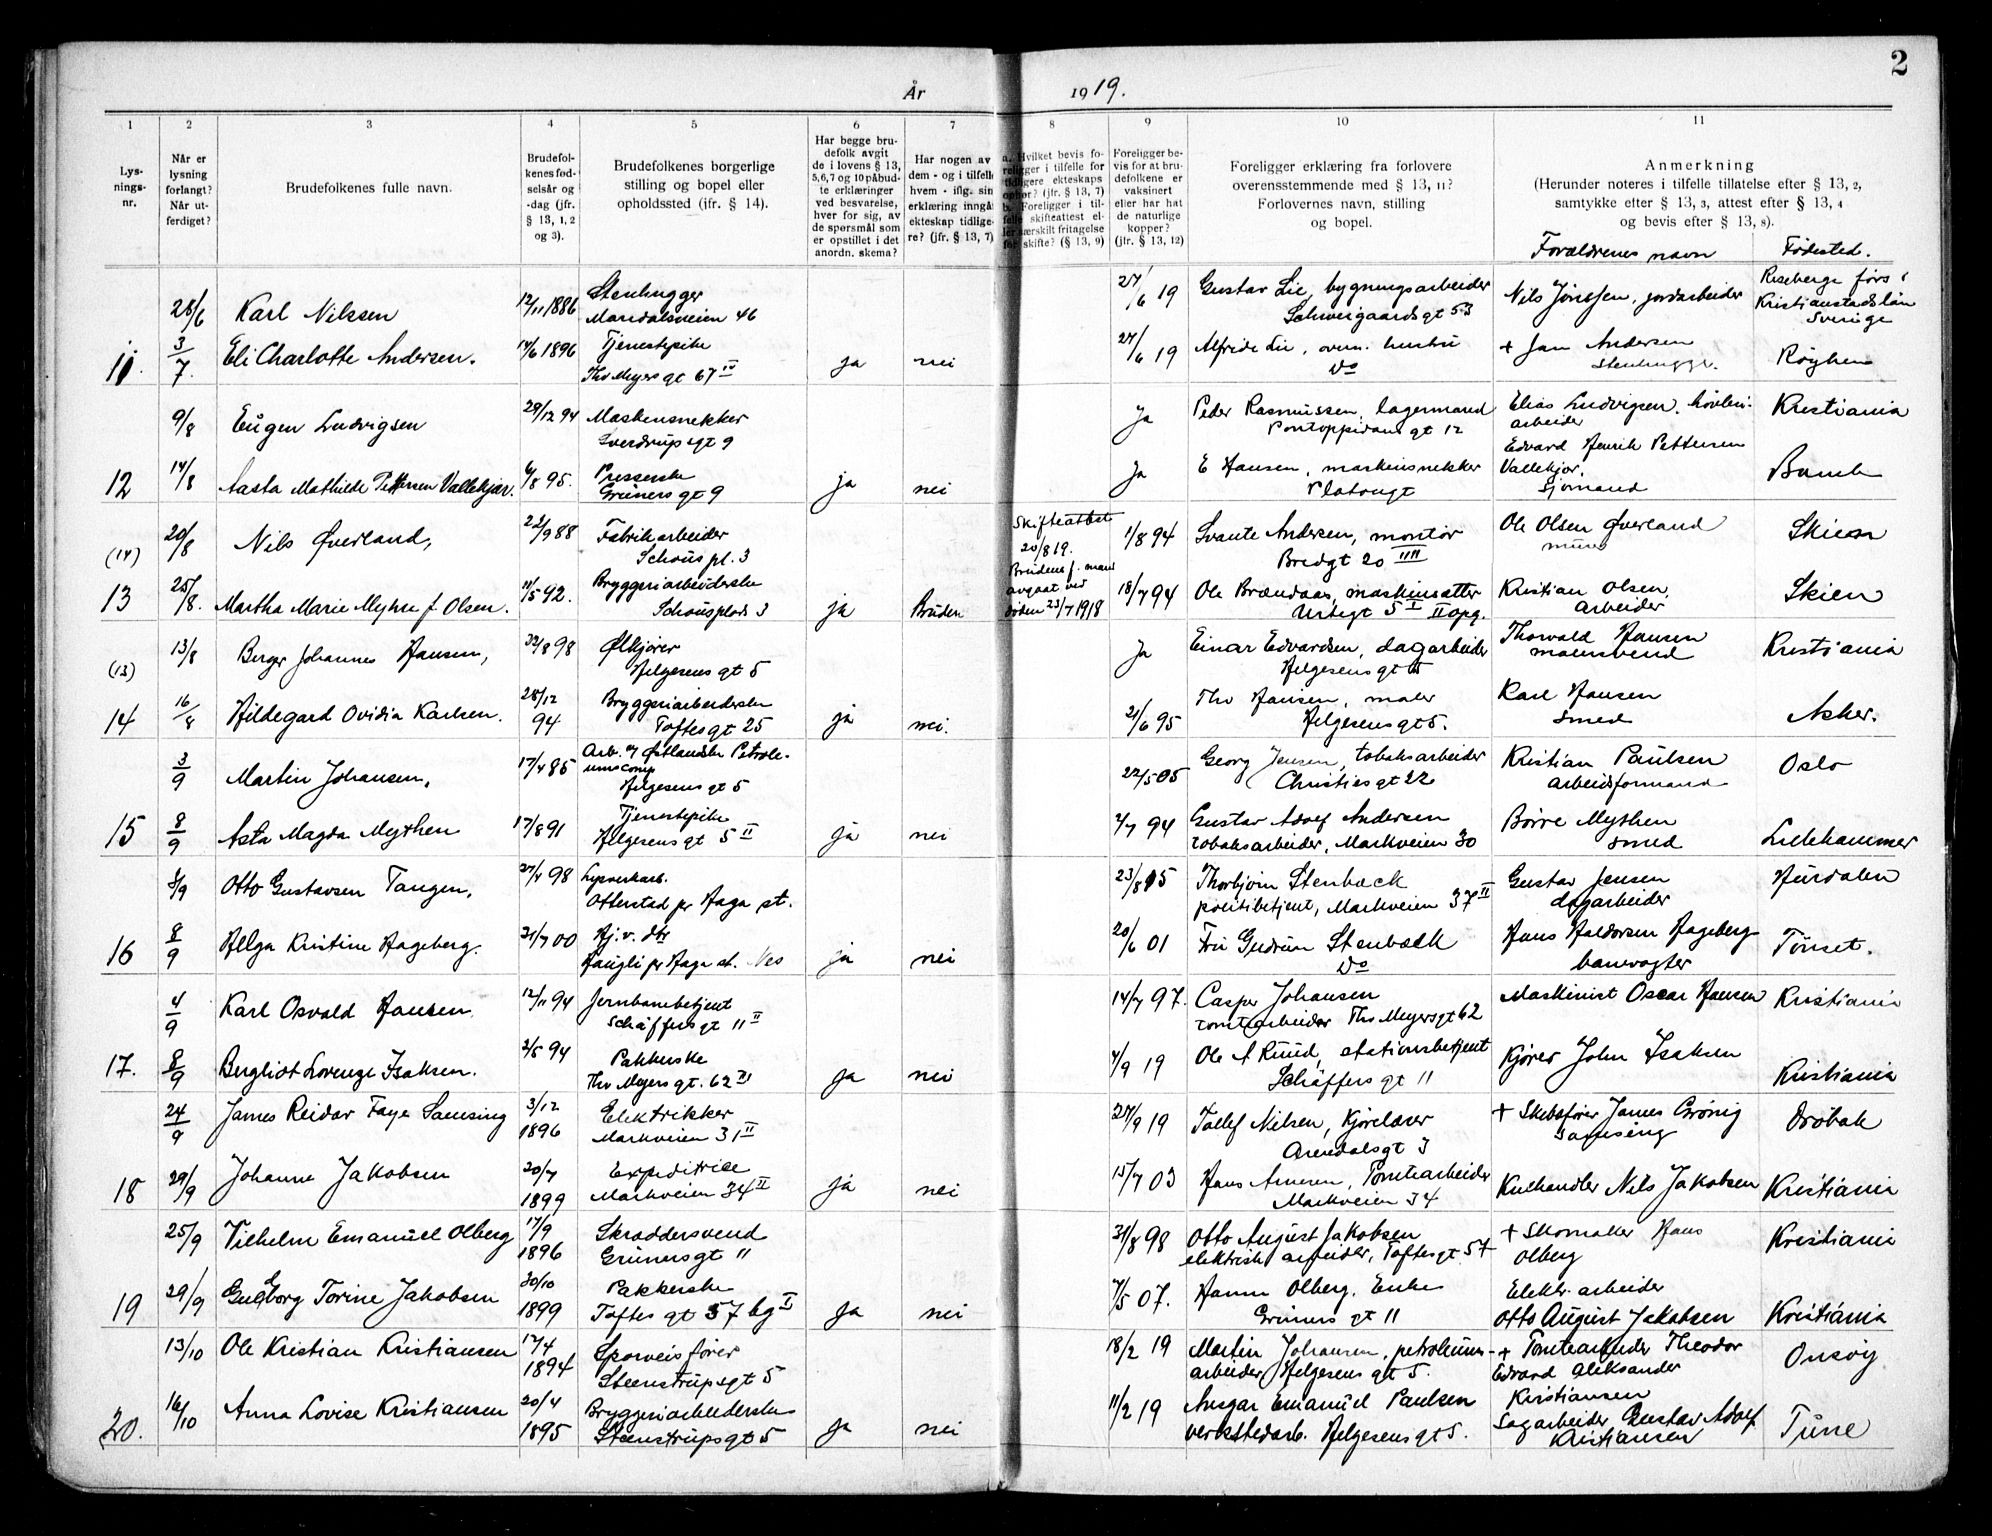 2
År 1919.
1 2 3 4 5 6 7 8 9 10 11
Lys-
nings-
nr.
Når er
lysning
forlangt?
Når ut-
ferdiget?
Brudefolkenes fulle navn.
Brudefol-
kenes fød-
selsår og
-dag (jfr.
§ 13, 1, 2
og 3).
Brudefolkenes borgerlige
stilling og bopel eller
opholdssted (jfr. § 14).
Har begge bru-
defolk avgit
de i lovens § 13,
5,6,7 og 10 påbud-
te erklæringer
ved besvarelse,
hver for sig, av
de spørsmål som
er opstillet i det
anordn. skema?
Har nogen av
dem - og i tilfelle
hvem - iflg. sin
erklæring inngåt
ekteskap tidlige-
re? (jfr. § 13, 7)
a. Hvilket bevis fo-
religger i tilfelle for
tidligere ekteskaps
ophør? (jfr. § 13, 7)
b. Foreligger i til-
felle skifteattest el-
ler særskilt fritagelse
for skifte? (§ 13, 9)
Foreligger be-
vis for at bru-
defolkene er
vaksinert
eller har hat
de naturlige
kopper?
(jfr. § 13, 12)
Foreligger erklæring fra forlovere
overensstemmende med § 13, 11?
Forlovernes navn, stilling
og bopel.
Anmerkning
(Herunder noteres i tilfelle tillatelse efter § 13, 2,
samtykke efter § 13, 3, attest efter § 13, 4
og bevis efter § 13, 8).
Forældrenes navn Fødested.
28/6 Karl Nilssen 12/11 1886 Stenhugger
Maridalsveien 46
27/6 19 Gustav Lie, bygningsarbeider
Schweigaards gt 53
Nils Jönsson, jordarbeider
Riseberge förs i
Kristianstads län
Sverige
11. 3/7. Eli Charlotte Andersen. 14/6 1896 Tjenestepike
Thv Meyers gt 67 IV
ja nei 27/6 19 Alfride Lie, hustru
Do
+ Jan Andersen
Stenhugger. Røyken
9/8 Eugen Ludvigsen 29/12 94 Maskinsnekker
Sverdrups gt 9
Ja Peder Rasmussen, lagermand
Pontoppidans gt 12
Elias Ludvigsen. høvleri-
arbeider Kristiania
12 14/8 Aasta Mathilde Pettersen Vallekjær. 6/8 95. Presserske
Grüners gt 9
ja nei Ja E Hansen, maskinsnekker
Platougt
Edvard Henrik Pettersen
Vallekjær.
Sjømand Bamle
(14) 20/8 Nils Øverland, 22/9 88 Fabrikarbeider
Schous pl. 3
Skifteattest
20/8 19.
1/8 94 Svante Andersen, montør
Bredgt 20 IIII
Ole Olsen Øverland
murer Skien
13 25/8. Martha Marie Myhre f. Olsen. 11/5 92. Bryggeriarbeiderske
Schousplads 3
ja Bruden
Brudens f. mand
avgaat ved
døden 23/7 1918
18/7 94 Ole Brændaas, maskinsætter
Urtegt 5 I II opg.
Kristian Olsen,
arbeider Skien
(13) 13/8 Berger Johannes Hansen, 22/8 98 Ølkjører
Helgesens gt 5
Ja Einar Edvardsen, dagarbeider
Helgesens gt
Thorvald Hansen
malersvend Kristiania
14 16/8 Hildegard Ovidia Karlsen. 28/12
94 Bryggeriarbeiderske
Toftes gt 25
ja nei. 21/6 95 Thv Hansen, maler
Helgesens gt 5.
Karl Hansen
smed Asker.
3/9 Martin Johansen, 17/4 85 Arb. v/ Østlandske Petrole-
umscomp
Helgesens gt 5
22/5 05 Georg Jensen, tobaksarbeider
Christies gt 22
Kristian Paulsen
arbeidsformand Oslo
15 8/9 Asta Magda Mythen 17/8 91 Tjenestepike
Helgesens gt 5 II
ja nei 2/7 94 Gustav Adolf Andersen
tobaksarbeider, Markveien 30
Børre Mythen
smed Lillehammer
8/9 Otto Gustavsen Tangen, 27/4 98 Lysverkarb.
Otterstad pr Haga st.
23/8 15 Thorbjørn Stenbæck
politibetjent, Markveien 37 II
Gustav Jensen
dagarbeider Hurdalen
16 8/9 Helga Kristine Hageberg. 21/7 00 Hj. v. dtr
Haugli pr Haga st. Nes
ja nei 20/6 01 Fru Gudrun Stenbæck
Do
Hans Haldorsen Hageberg
banevogter Tönset.
4/9 Karl Osvald Hansen 12/11 94 Jernbanebetjent
Schäffers gt 11 II
14/7 97. Casper Johansen
tomtearbeider Thv Meyersgt 62
Maskinist Oscar Hansen Kristiania
17. 8/9 Bergliot Lovenze Isaksen. 2/5 94 Pakkerske
Thv Meyers gt. 62 II
ja nei 4/9 19 Ole A Ruud, stationsbetjent
Schäffers gt 11
Kjører John Isaksen
Kristiania
24/9 James Reidar Faye Samsing 3/12
1896 Elektrikker
Markveien 31 II
27/9 19 Tollef Nilsen, Kjørelærer
Arendalsgt 3
+ Skibsfører James Grönig
Samsing Drøbak
18 29/9 Johanne Jakobsen 20/7
1899 Expeditrice
Markveien 34 II
ja nei 15/7 03 Hans Arnesen, Tomtearbeider
Markveien 34
Kulhandler Nils Jakobsen Kristiania
25/9 Vilhelm Emanuel Olberg 17/9
1896 Skræddersvend
Grüners gt 11
31/8 98 Otto August Jakobsen
elektrisk arbeider, Toftes gt 57
+ Skomaker Hans
Olberg Kristiania
19 29/9 Gueborg Torine Jakobsen 30/10
1899 Pakkerske
Toftes gt 57 bg I
ja nei 7/5 07. Hanna Olberg, Enke
Grüners gt 11
Elektr. arbeider
Otto August Jakobsen Kristiania
13/10 Ole Kristian Kristiansen 17/4
1894 Sporveisfører
Steenstrupsgt 5
18/2 19 Martin Johansen, petroleums-
arbeider Helgesens gt 5.
+ Tomtearbeider Theodor
Edvard Aleksander
Kristiansen Onsøy
20. 16/10 Anna Lovise Kristiansen 20/4
1895 Bryggeriarbeiderske
Steenstrupsgt 5
ja nei 11/2 19 Ansgar Emanuel Paulsen
verkstedarb. Helgesens gt 5.
Sagarbeider Gustav Adolf
Kristiansen Tune